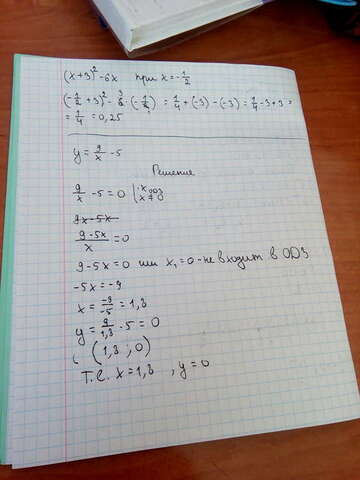 (x+3)² - 6x при x = -1/2
(-1/2 + 3)² - 6·(-1/2) = 1/4 + (-3) - (-3) = 1/4 - 3 + 3 =
= 1/4 = 0,25
y = 9/x - 5
Решение
9/x - 5 = 0 | · x ОДЗ x ≠ 0
9x - 5x
(9 - 5x)/x = 0
9 - 5x = 0 или x₁ = 0 - не входит в ОДЗ
-5x = -9
x = -9/-5 = 1,8
y = 9/1,8 - 5 = 0
(1,8 ; 0)
Т.е. x = 1,8 , y = 0